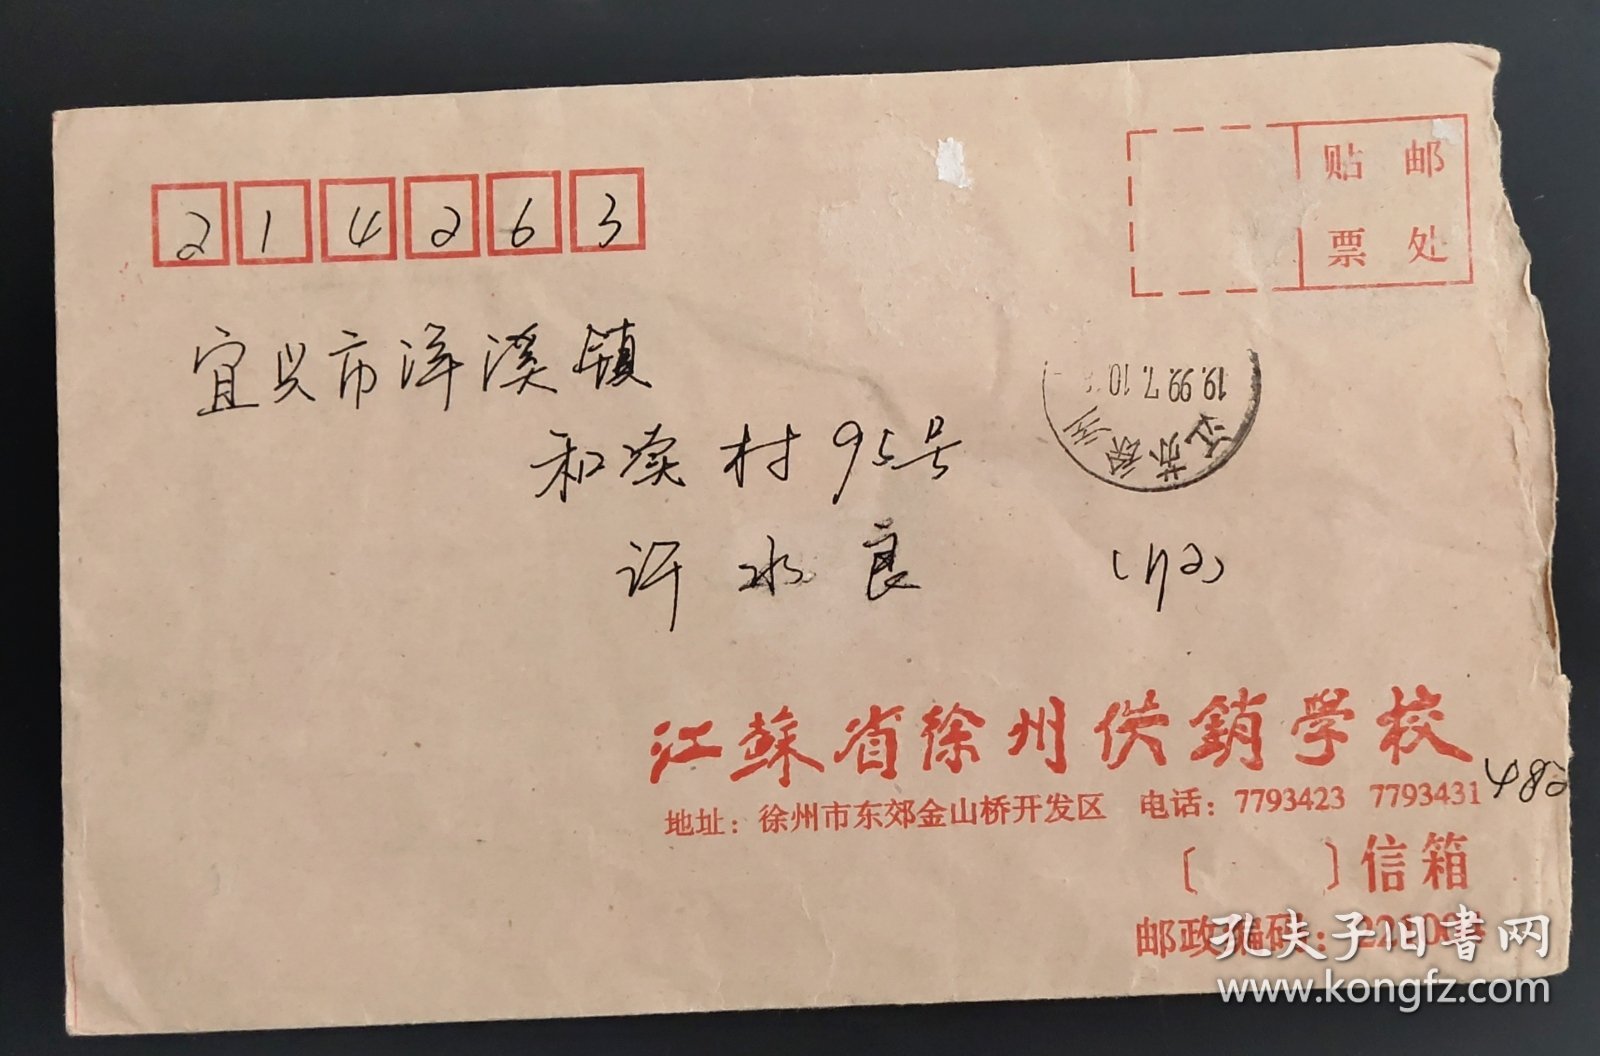 214263
贴邮
票处
宜兴市洋溪镇
和渎村95号
许水良 (收)
19.99.7.10.
江苏徐州
江蘇省徐州供銷学校
地址：徐州市东郊金山桥开发区 电话：7793423 7793431
482
〔 〕信箱
邮政编码：
孔夫子旧書网
www.kongfz.com